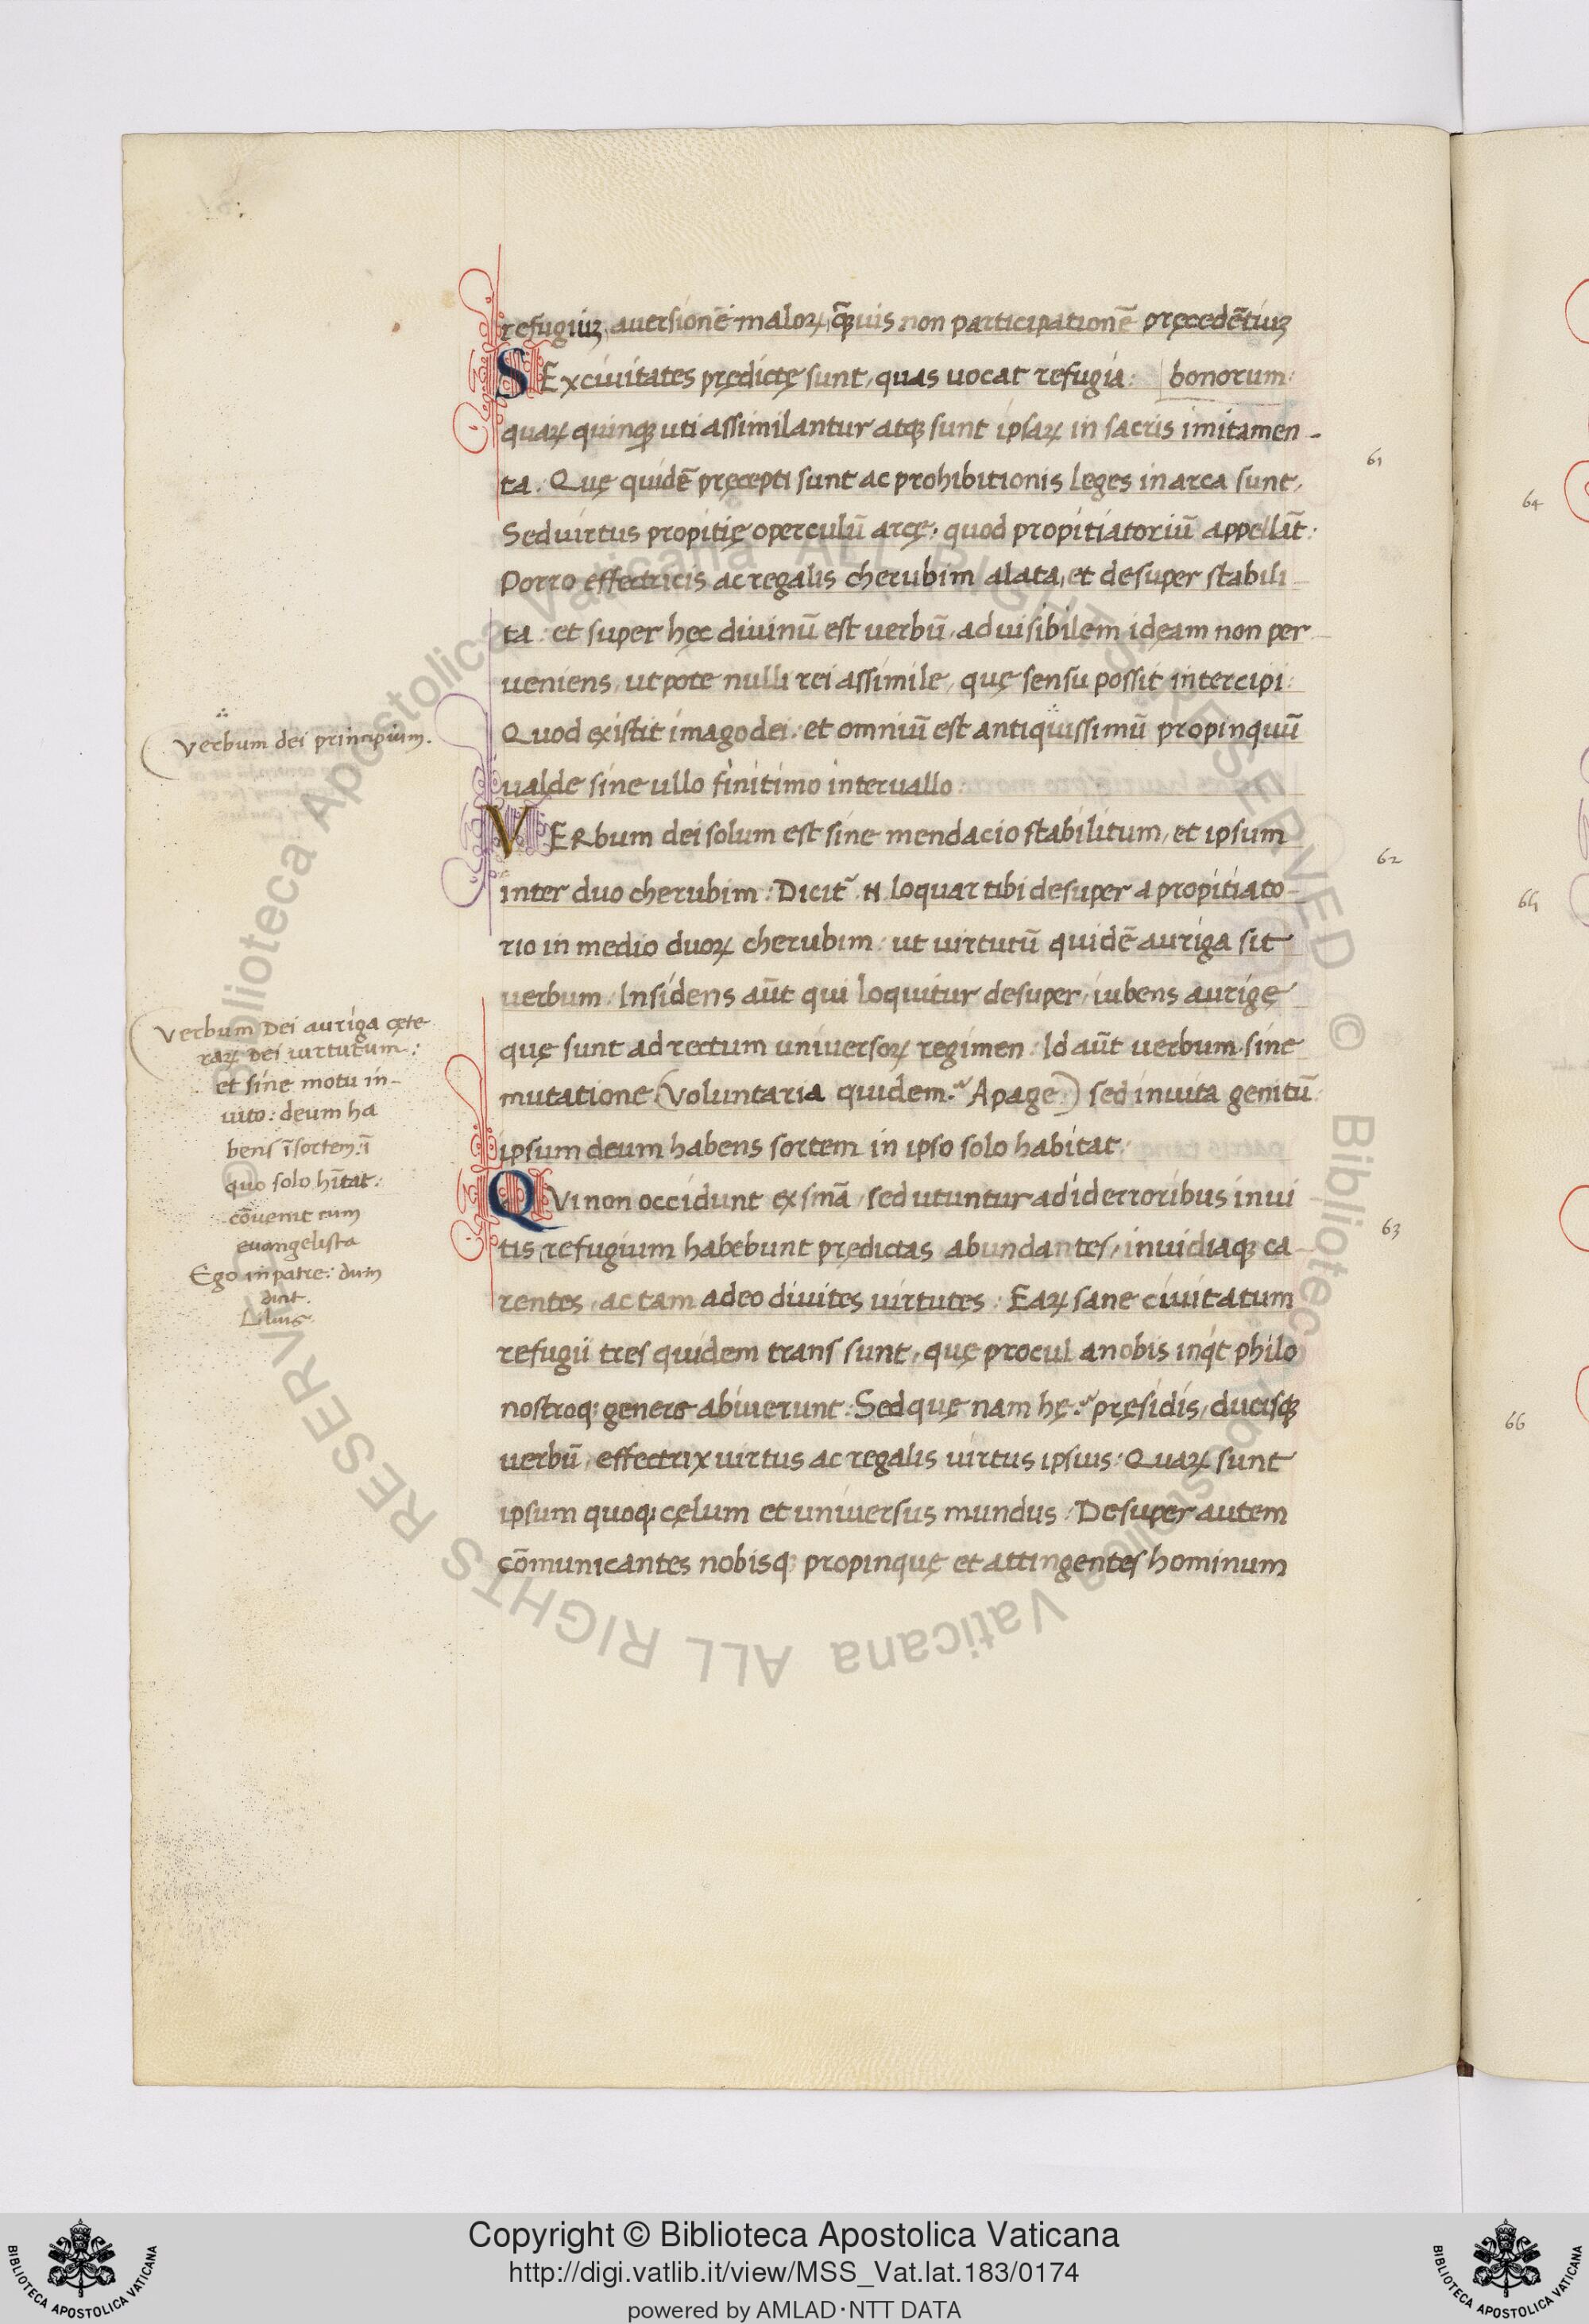 refugiuȝ, auersionē maloꝝ, ꝙ̃uis non participationē pręcedētiuȝ
SEx ciuitates prędictę sunt, quas uocat refugia: bonorum:
quaꝝ quinqꝫ uti assimilantur atqꝫ sunt ipsaꝝ in sacris imitamen-
ta. Quę quidē pręcepti sunt ac prohibitionis leges in arca sunt,
Sed uirtus propitię operculū arcę: quod propitiatoriū appellāt:
Porro effectricis ac regalis cherubim alata, et desuper stabili-
ta: et super hęc diuinū est uerbū, ad uisibilem ideam non per-
ueniens, ut pote nulli rei assimile, quę sensu possit intercipi:
Quod existit imago dei: et omniū est antiquissimū propinquū
ualde sine ullo finitimo interuallo:
VERbum dei solum est sine mendacio stabilitum, et ipsum
inter duo cherubim: Dicit᷑ .N. loquar tibi desuper a propitiato-
rio in medio duoꝝ cherubim: ut uirtutū quidē auriga sit
uerbum: Insidens aūt qui loquitur desuper, iubens aurigę
quę sunt ad rectum uniuersoꝝ regimen: Id aūt uerbum sine
mutatione (voluntaria quidem? Apage) sed inuita genitū
ipsum deum habens sortem in ipso solo habitat:
QVi non occidunt ex sm̄a, sed utuntur ad id erroribus inui
tis, refugium habebunt prędictas abundantes, inuidiaqꝫ ca-
rentes, ac tam adeo diuites uirtutes: Eaꝝ sane ciuitatum
refugii tres quidem trans sunt, quę procul a nobis inqt philo
nostroqꝫ genere abiuerunt: Sed quę nam hę? pręsidis, ducisqꝫ
uerbū, effectrix uirtus ac regalis uirtus ipsius: Quaꝝ sunt
ipsum quoqꝫ cęlum et uniuersus mundus: Desuper autem
cōmunicantes nobisqꝫ propinquę et attingentes hominum
verbum dei principium.
verbum Dei auriga cęte
raꝝ Dei uirtutum:
et sine motu in-
uito: deum ha
bens ī sortem: ī
quo solo hītat:
cōuenit cum
euangelista
Ego in patre: dum
61
62
63
64
66
Copyright © Biblioteca Apostolica Vaticana
http://digi.vatlib.it/view/MSS_Vat.lat.183/0174
powered by AMLAD·NTT DATA
BIBLIOTECA APOSTOLICA VATICANA
BIBLIOTECA APOSTOLICA VATICANA
© Biblioteca Apostolica Vaticana ALL RIGHTS RESERVED © Biblioteca Apostolica Vaticana ALL RIGHTS RESERVED